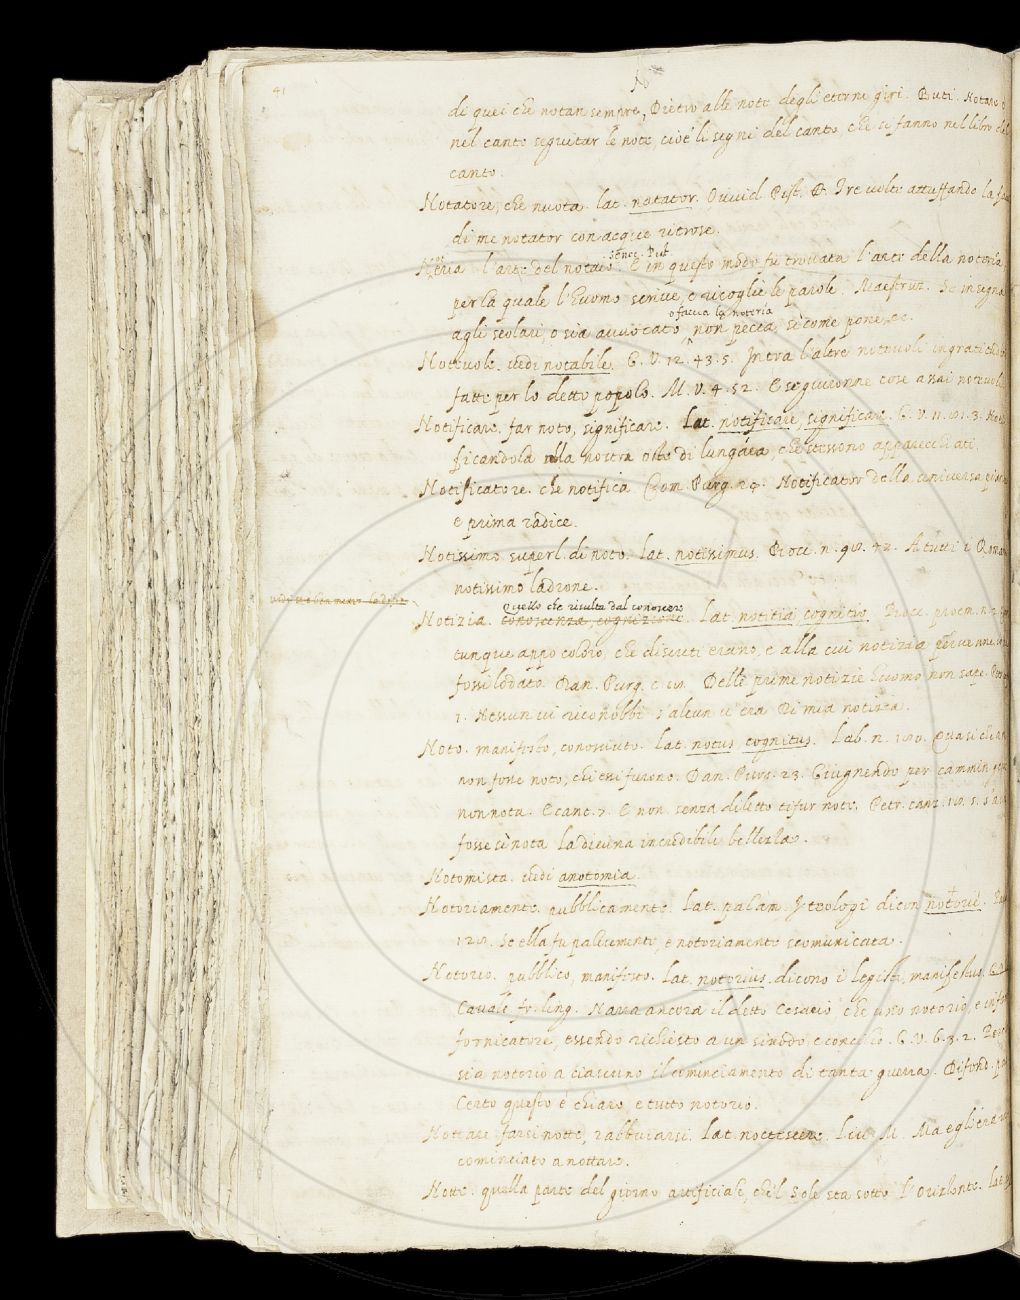 41
N
di quei che notan sempre, Dietro alle note degli eterni giri. Buti. Notare
nel canto seguitar le note, cioè li segni del canto, che si fanno nel libro del
canto.
Notatore, che nuota. lat. natator. Ovvid. Pist. D. Tre volte attuffando la
di me notator con acque ritrose.
Noteria l'arte del notaio. Senec. Pist. E in questo modo fu trovata l'arte della noteria,
per la quale l'huomo scrive, e ricoglie le parole. Maestruz. Se insegna
o faccia la noteria
agli scolari, o sia avvocato non pecca, sì come pone, ec.
Notevole. vedi notabile. G. V. 12. 43. 5. Intra l'altre notevoli ingratitudini
fatte per lo detto popolo. M. V. 4. 52. E seguironne cose assai notevoli
Notificare. far noto, significare. Lat. notificare, significare. G. V. 11. 3.
ficandola alla nostra oste di lungára, che stessono apparecchiati.
Notificatore. che notifica. Com. Purg. Notificator della universa
e prima radice.
Notissimo superl. di noto. Lat. notissimus. Bocc. n. 42. A tutti i
notissimo ladrone.
Quello che risulta dal conoscere
Notizia. conoscenza, cognizione. Lat. notitia, cognitio. Bocc. proem. n.
tunque appo coloro, che discreti erano, e alla cui notizia pervenne,
fossi lodato. Dan. Purg. c. 18. Delle prime notizie huomo non sape.
1. Nessun vi riconobbi s'alcun v'era Di mia notizia.
Noto. manifesto, conosciuto. Lat. notus, cognitus. Lab. n. Quasi
non fosse noto, chi essi furono. Dan. Purg. 23. Giugnendo per cammin
non nota. E cant. 7. E non senza diletto ti fur note. Petr. canz. 5.
fosse sì nota La divina incredibile bellezza.
Notomista. vedi anotomia.
Notoriamente. pubblicamente. Lat. palàm. I teologi dicon notoriè.
Se ella fu palesemente, e notoriamente scomunicata.
Notorio. pubblico, manifesto. Lat. notorius. dicono i legisti, manifestus.
Cavalc. fr. ling. Narra ancora il detto Cesario, che uno notorio, e
fornicatore, essendo richiesto a un sinodo, e concilio. G. V. 6. 3. 2.
sia notorio a ciascuno il cominciamento di tanta guerra. Difend. pa
Certo questo è chiaro, e tutto notorio.
Nottare farsi notte, rabbuiarsi. Lat. noctescere. Liv. M. Ma egli era
cominciato a nottare.
Notte. quella parte del giorno artificiale, che'l Sole sta sotto l'Orizonte. Lat.